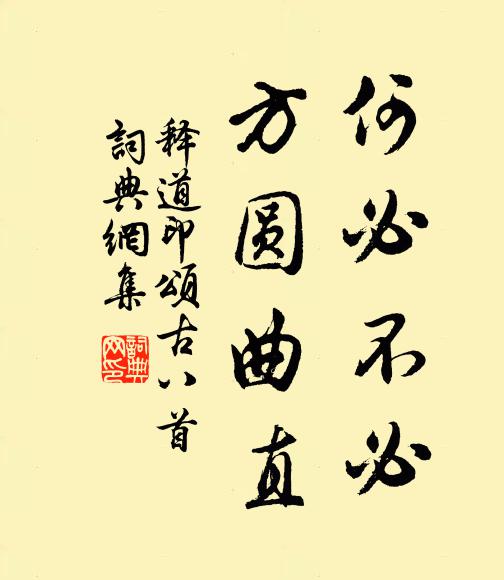 何必不必
方圆曲直
释道印頌古八首
詞典網集
詞典網印